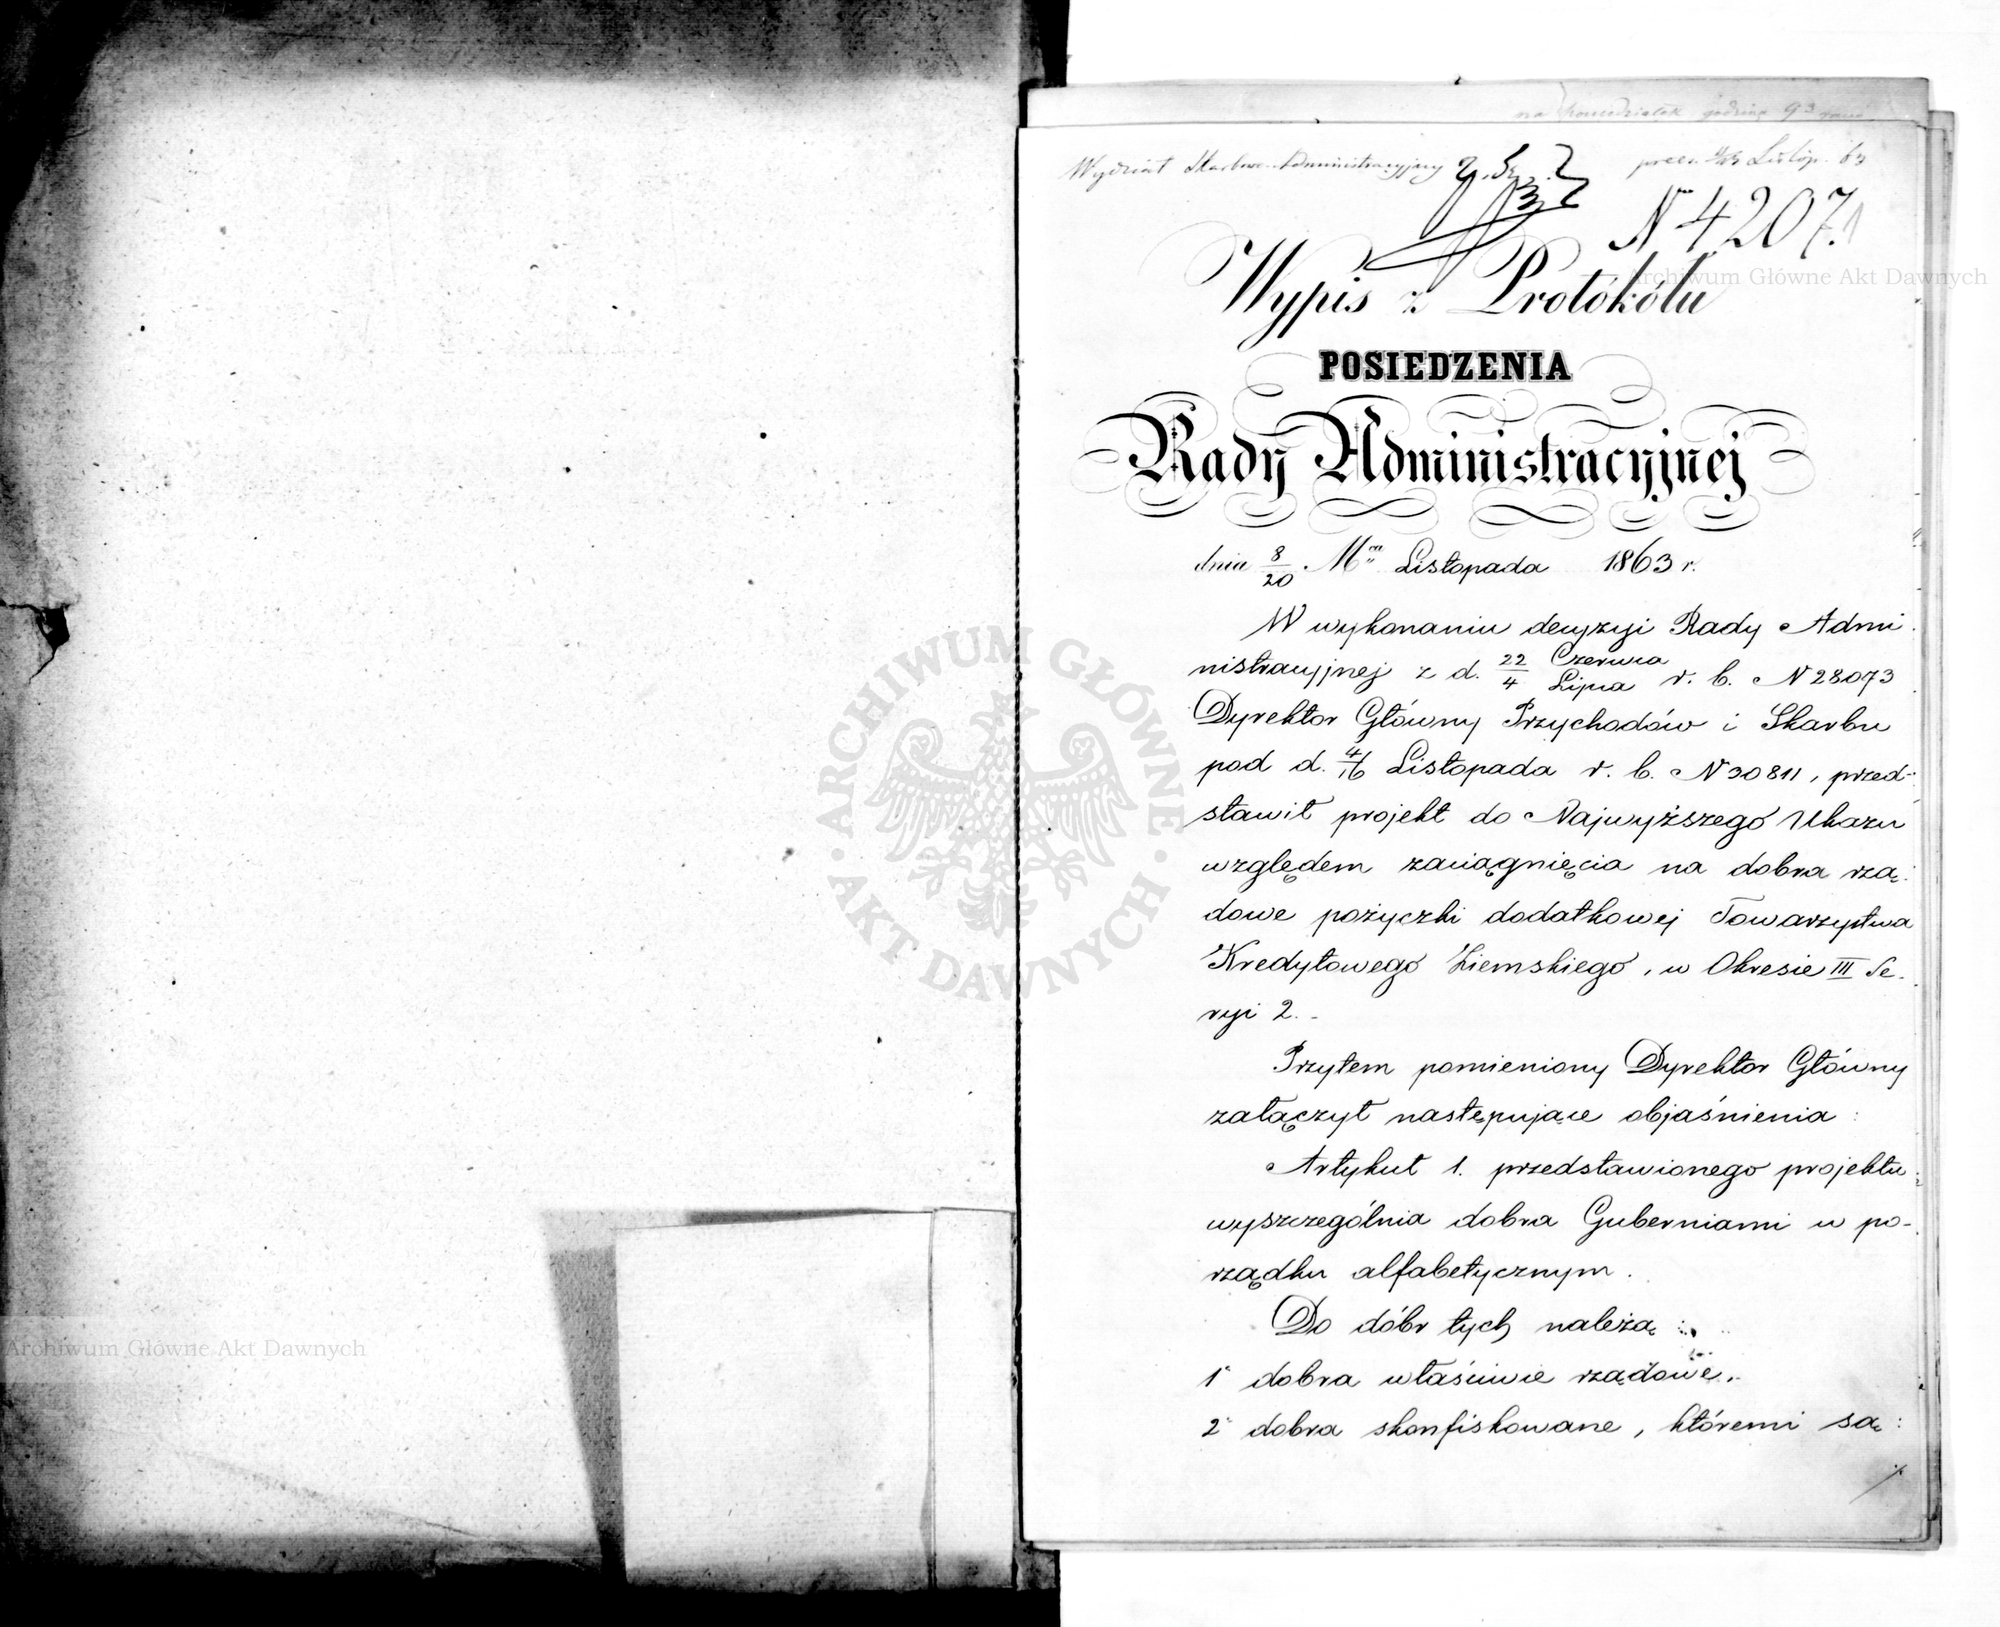 na poniedziałek godzina 9 3
Wydział Skarbowo-Administracyjny
prez. 11/23 Listop. 63
N 4207.
Wypis z Protókółu
POSIEDZENIA
Rady Administracyjnej
dnia 8/20 Mca Listopada 1863 r.
W wykonaniu decyzyi Rady Admi-
nistracyjnej z d. 22 Czerwca / 4 Lipca r. b. N 28073
Dyrektor Główny Przychodów i Skarbu
pod d. 4/16 Listopada r. b. N 30811, przed-
stawił projekt do Najwyższego Ukazu
względem zaciągnięcia na dobra rzą-
dowe pożyczki dodatkowej Towarzystwa
Kredytowego Ziemskiego, w Okresie III Se-
ryi 2.-
Przytem pomieniony Dyrektor Główny
załączył następujące objaśnienia:
Artykuł 1. przedstawionego projektu
wyszczególnia dobra Guberniami w po-
rządku alfabetycznym.
Do dóbr tych należą:
1° dobra właściwie rządowe.
2° dobra skonfiskowane, któremi są:
ARCHIWUM GŁÓWNE AKT DAWNYCH
Archiwum Główne Akt Dawnych
Archiwum Główne Akt Dawnych